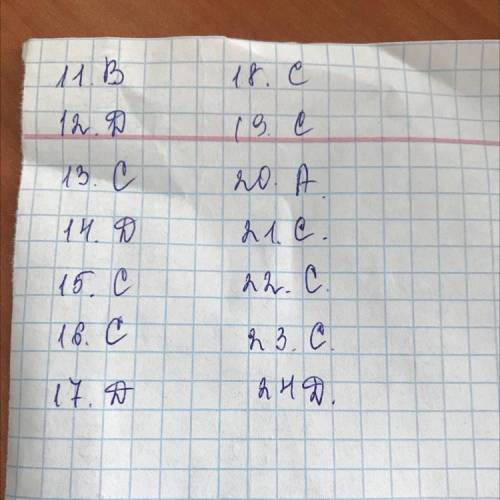 11. B
12. D
13. C
14. D
15. C
16. C
17. D
18. C
19. C
20. A.
21. C.
22. C.
23. C.
24 D.